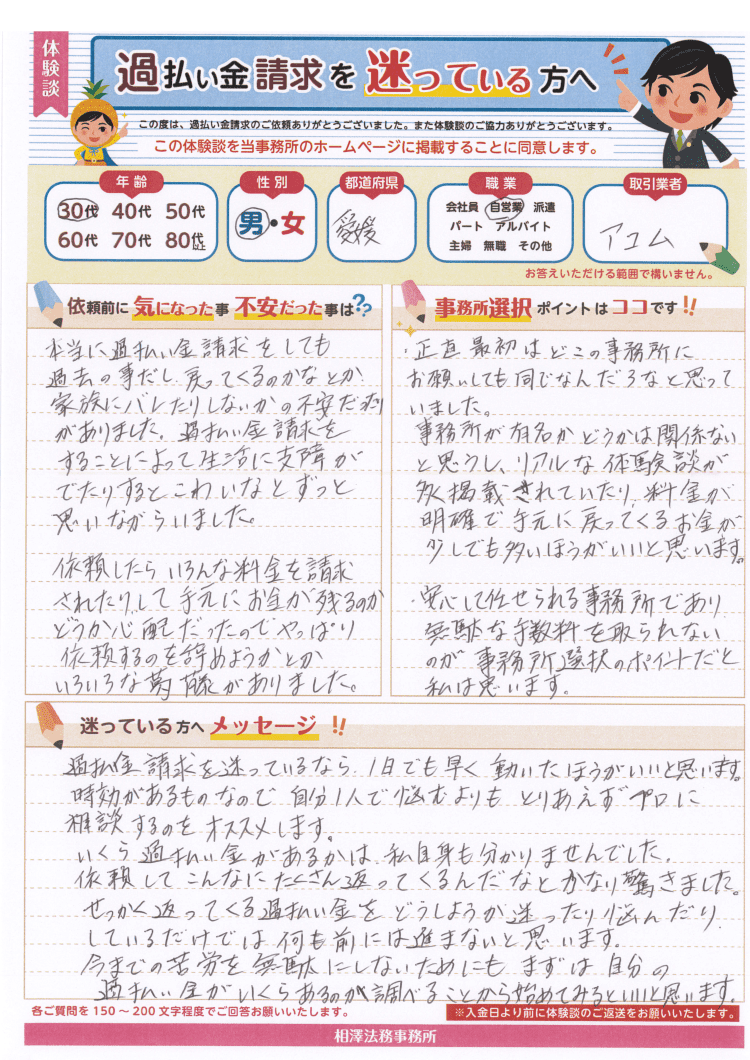 体験談
過払い金請求を迷っている方へ
この度は、過払い金請求のご依頼ありがとうございました。また体験談のご協力ありがとうございます。
この体験談を当事務所のホームページに掲載することに同意します。
年齢
30代 40代 50代
60代 70代 80代以上
性別
男・女
都道府県
愛媛
職業
会社員 自営業 派遣
パート アルバイト
主婦 無職 その他
取引業者
アコム
お答えいただける範囲で構いません。
依頼前に気になった事 不安だった事は??
本当に過払い金請求をしても
過去の事だし、戻ってくるのかなとか
家族にバレたりしないかの不安だったり
がありました。過払い金請求を
することによって生活に支障が
でたりするとこわいなとずっと
思いながらいました。
依頼したらいろんな料金を請求
されたりして手元にお金が残るのか
どうか心配だったのでやっぱり
依頼するのを辞めようかとか
いろいろな葛藤がありました。
事務所選択ポイントはココです!!
・正直最初はどこの事務所に
お願いしても同じなんだろなと思って
いました。
事務所が有名かどうかは関係ない
と思うし、リアルな体験談が
多く掲載されていたり、料金が
明確で手元に戻ってくるお金が
少しでも多いほうがいいと思います。
・安心して任せられる事務所であり
無駄な手数料を取られない
のが事務所選択のポイントだと
私は思います。
迷っている方へメッセージ!!
過払金請求を迷っているなら、1日でも早く動いたほうがいいと思います。
時効があるものなので自分1人で悩むよりもとりあえずプロに
相談するのをオススメします。
いくら過払い金があるかは、私自身も分かりませんでした。
依頼してこんなにたくさん返ってくるんだなとかなり驚きました。
せっかく返ってくる過払い金をどうしようか迷ったり悩んだり
しているだけでは何も前には進まないと思います。
今までの苦労を無駄にしないためにもまずは自分の
過払い金がいくらあるのか調べることから始めてみるといいと思います。
各ご質問を150～200文字程度でご回答お願いいたします。
※入金日より前に体験談のご返送をお願いいたします。
相澤法務事務所